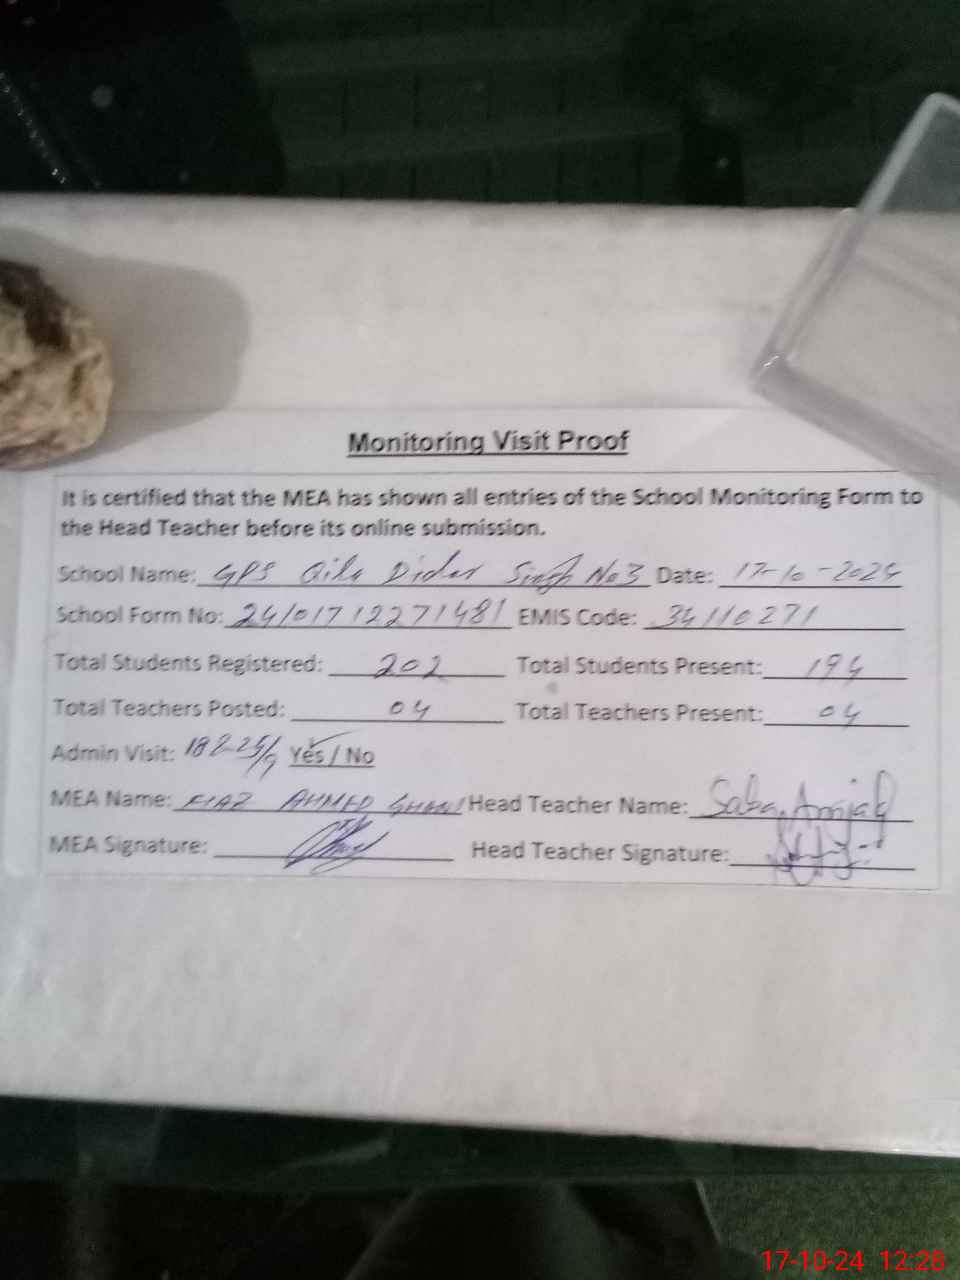 Monitoring Visit Proof
It is certified that the MEA has shown all entries of the School Monitoring Form to
the Head Teacher before its online submission.
School Name: GPS Qila Didar Singh No 3 Date: 17-10-2024
School Form No: 24101712271481 EMIS Code: 34110271
Total Students Registered: 202 Total Students Present: 194
Total Teachers Posted: 04 Total Teachers Present: 04
Admin Visit: Yes / No
MEA Name: FIAZ AHMED Head Teacher Name: Saba Amjad
MEA Signature: Head Teacher Signature:
17-10-24 12:28